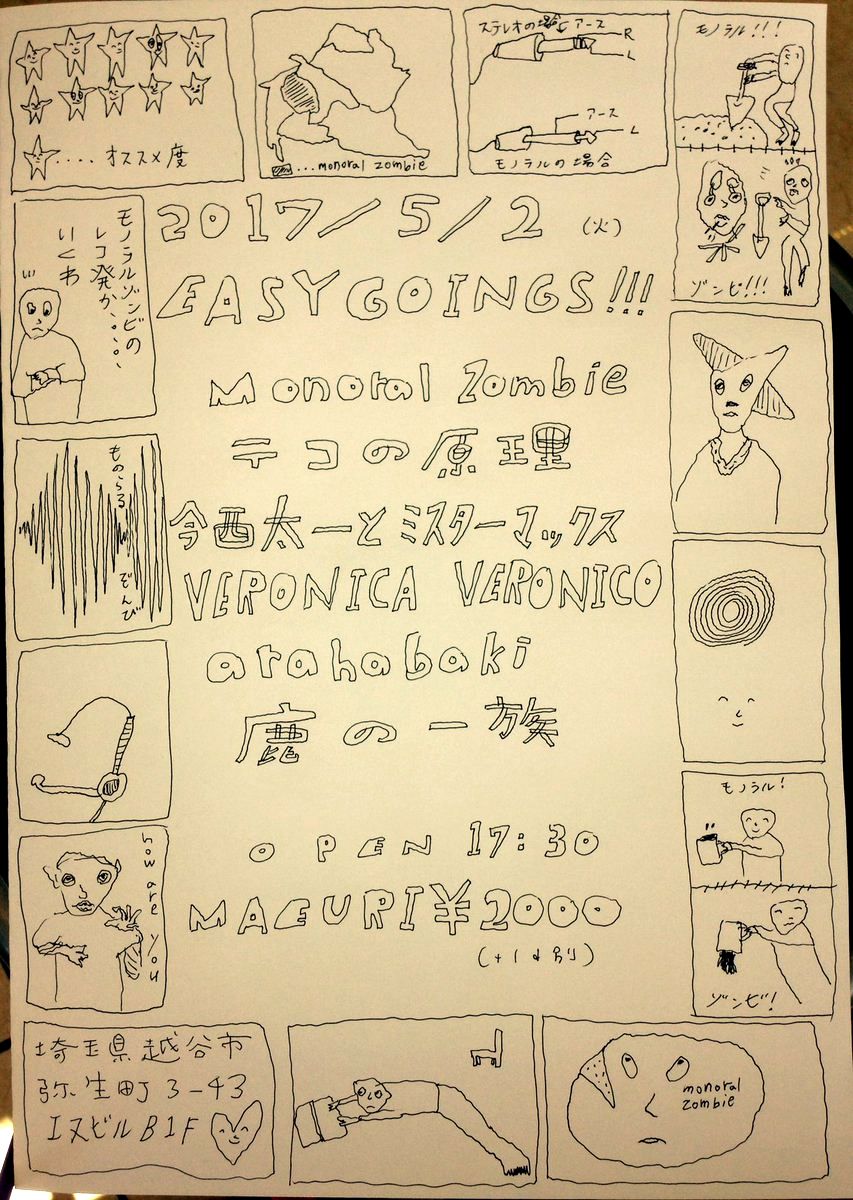 ・・・・オススメ度
・・・monoral zombie
ステレオの場合 アース
R
L
アース
L
モノラルの場合
モノラル!!!
ゾンビ!!!
モノラルゾンビの
レコ発か、、、、、
いくわ
2017/5/2 (火)
EASYGOINGS!!!
Monoral Zombie
テコの原理
今西太一とミスターマックス
VERONICA VERONICO
arahabaki
鹿の一族
OPEN 17:30
MAEURI¥2000
(+1d別)
ものらる
ぞんび
how are you
モノラル!
ゾンビ!
埼玉県越谷市
弥生町3-43
エヌビルB1F
monoral
zombie